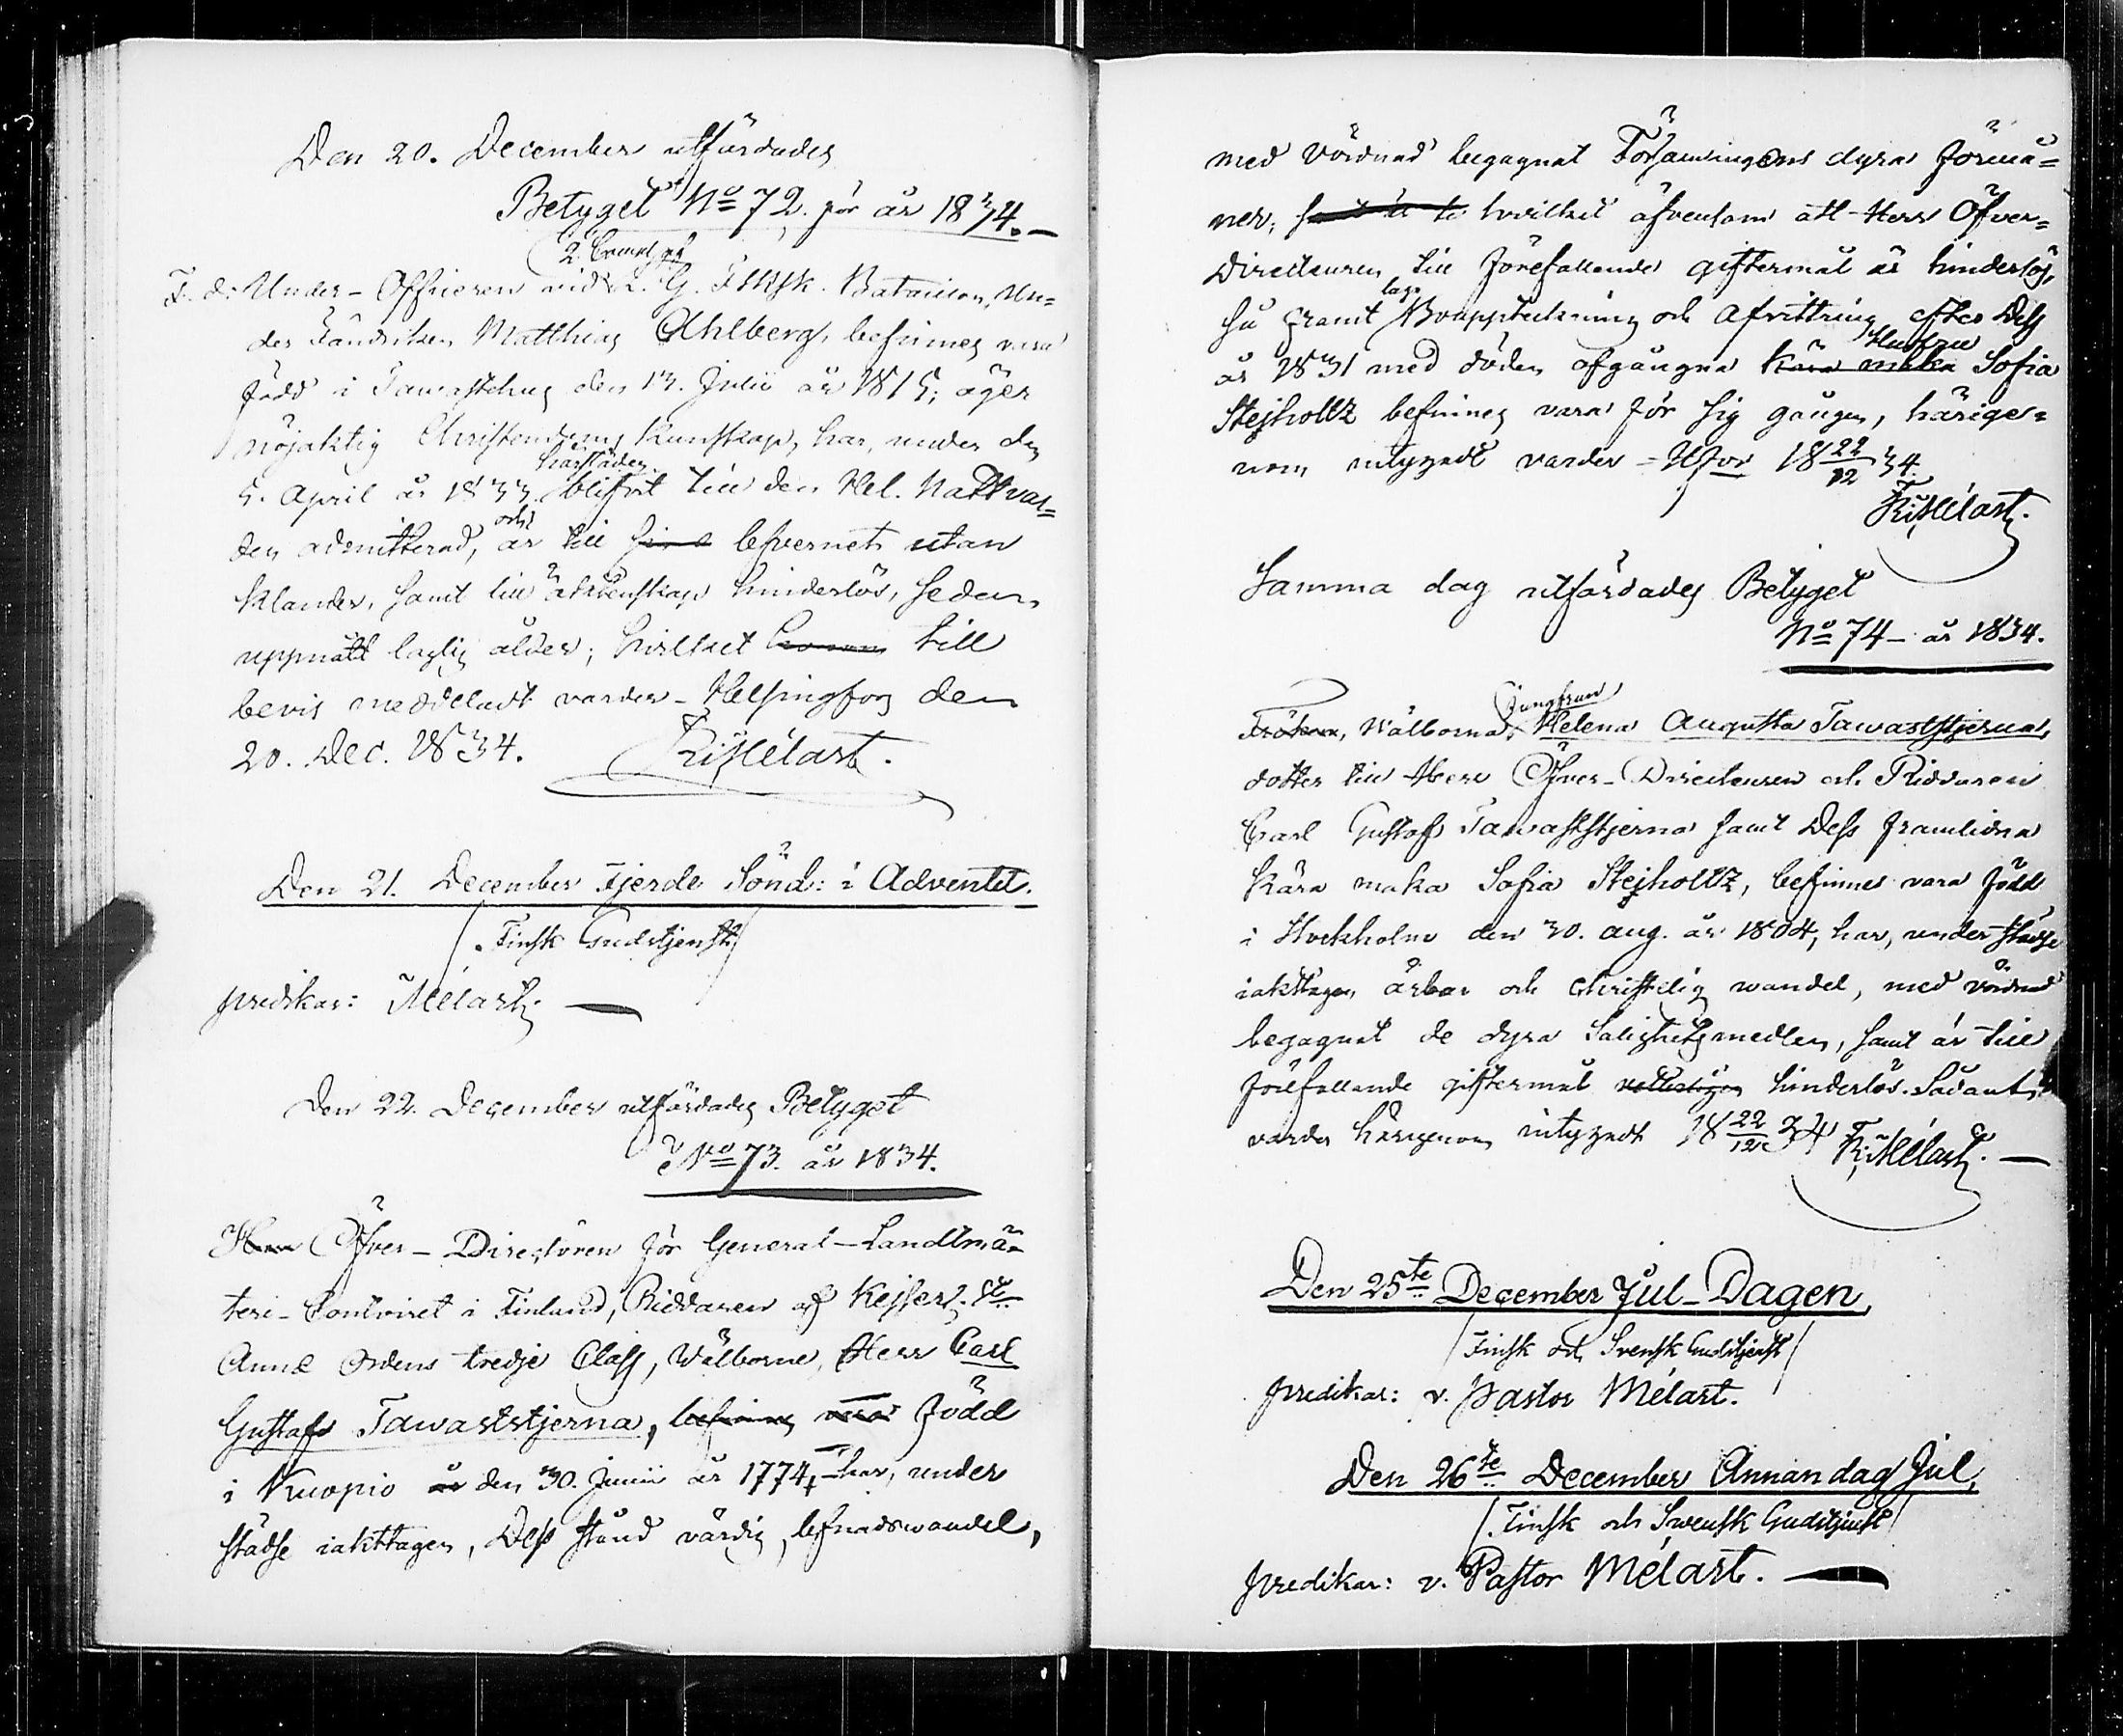 Den 20. December utfärdades
Betyget No 72. för år 1834.
2. Exempl på
F. d. Under-Officeren vid L. G. Finsk. Bataillon, Un-
der Fändriken Matthias Ahlberg, befinnes vara
född i Tawastehus den 13. Julii år 1815; äger
nöjaktig Christendoms kunskap, har, under den
härstädes
5. April år 1833. blifvit till den Hel. Nattvar-
och
den admitterad, är till sin lefvernet utan
klander, samt till äktenskap hinderlös, sedan
uppnått laglig ålder; hvilket till
bevis meddeladt varder - Helsingfors den
20. Dec. 1834. Mélart.
Den 21. December Fjerde Sönd: i Adventet.
Finsk Gudstjenst
predikar: Mélart.
Den 22. December utfärdades Betyget
No 73. år 1834.
Herr Öfver-Directören för General-Landtmä-
teri-Contoiret i Finland, Riddaren af Kejserl. Ste
Annæ Ordens tredje Class, Wälborne, Herr Carl
Gustaf Tawaststjerna, befinnes vara född
i Kuopio år den 30. Junii år 1774, har, under
städse iakttagen, Dess stånd värdig, lefnadswandel,
med vördnad begagnat Församlingens dyra förmå-
ner; hvilket äfvensom att Herr Öfver-
Directeuren till förefallande giftermål är hinderlös,
laga
så framt Bouppteckning och Afvittring efter Dess
Hustru
år 1831 med döden afgångna kära maka Sofia
Stejholtz befinnes vara för sig gången, härige-
nom intygadt varder - H:fors 18 22/12 34.
Mélart.
Samma dag utfärdades Betyget
No 74 - år 1834.
Jungfrun
Fröken, Wälborna, Helena Augusta Tawaststjerna,
dotter till Herr Öfver-Directeuren och Riddaren
Carl Gustaf Tawaststjerna samt Dess framlidna
kära maka Sofia Stejholtz, befinnes vara född
i Stockholm den 30. aug. år 1804, har, under städse
iakttagen ärbar och christelig wandel, med vördnad
begagnat de dyra Salighetsmedlen, samt är till
förefallande giftermål hinderlös. Sådant
varder härigenom intygadt 18 22/12 34 Mélart.
Den 25te December Jul-Dagen,
Finsk och Svensk Gudstjenst
predikar: v. Pastor Mélart.
Den 26te December Annan dag Jul,
Finsk och Swensk Gudstjenst
predikar: v. Pastor Mélart.